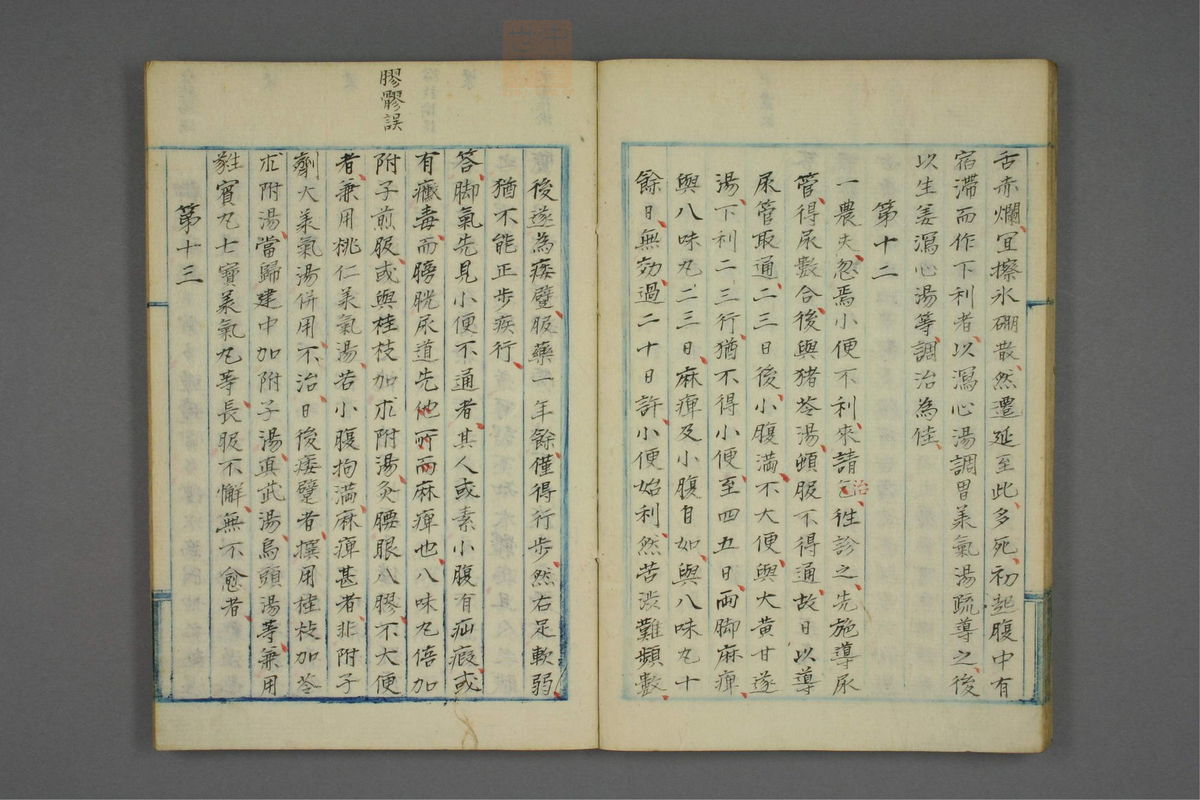 舌赤爛、宜擦氷硼散、然遷延至此、多死、初起腹中有
宿滞而作下利者、以瀉心湯調胃兼氣湯疏導之、後
以生姜瀉心湯等、調治為佳、
第十二
一農夫、忽焉小便不利、來請乞治、往診之、先施導尿
管、得尿數合、後與猪苓湯、頓服不得通、故日以導
尿管取通、二三日後、小腹満、不大便、與大黄甘遂
湯、下利二三行、猶不得小便、至四五日、両脚麻痺、
與八味丸、二三日、麻痺及小腹自如、與八味丸十
餘日、無効、過二十日許、小便始利、然苦渋難頻數、
後遂為痿躄、服藥一年餘、僅得行歩、然右足軟弱、
猶不能正歩疾行、
答、脚氣先見小便不通者、其人或素小腹有疝瘕、或
有癥毒、而膀胱尿道先他所而麻痺也、八味丸倍加
附子煎服、或與桂枝加朮附湯、灸腰眼八膠、不大便
者、兼用桃仁兼氣湯、苦小腹拘満、麻痺甚者、非附子
劑大兼氣湯併用、不治、日後痿躄者、撰用桂枝加苓
朮附湯、當歸建中加附子湯、真武湯、烏頭湯等、兼用
膠髎誤
賓丸七寶兼氣丸等、長服不懈、無不愈者、
第十三